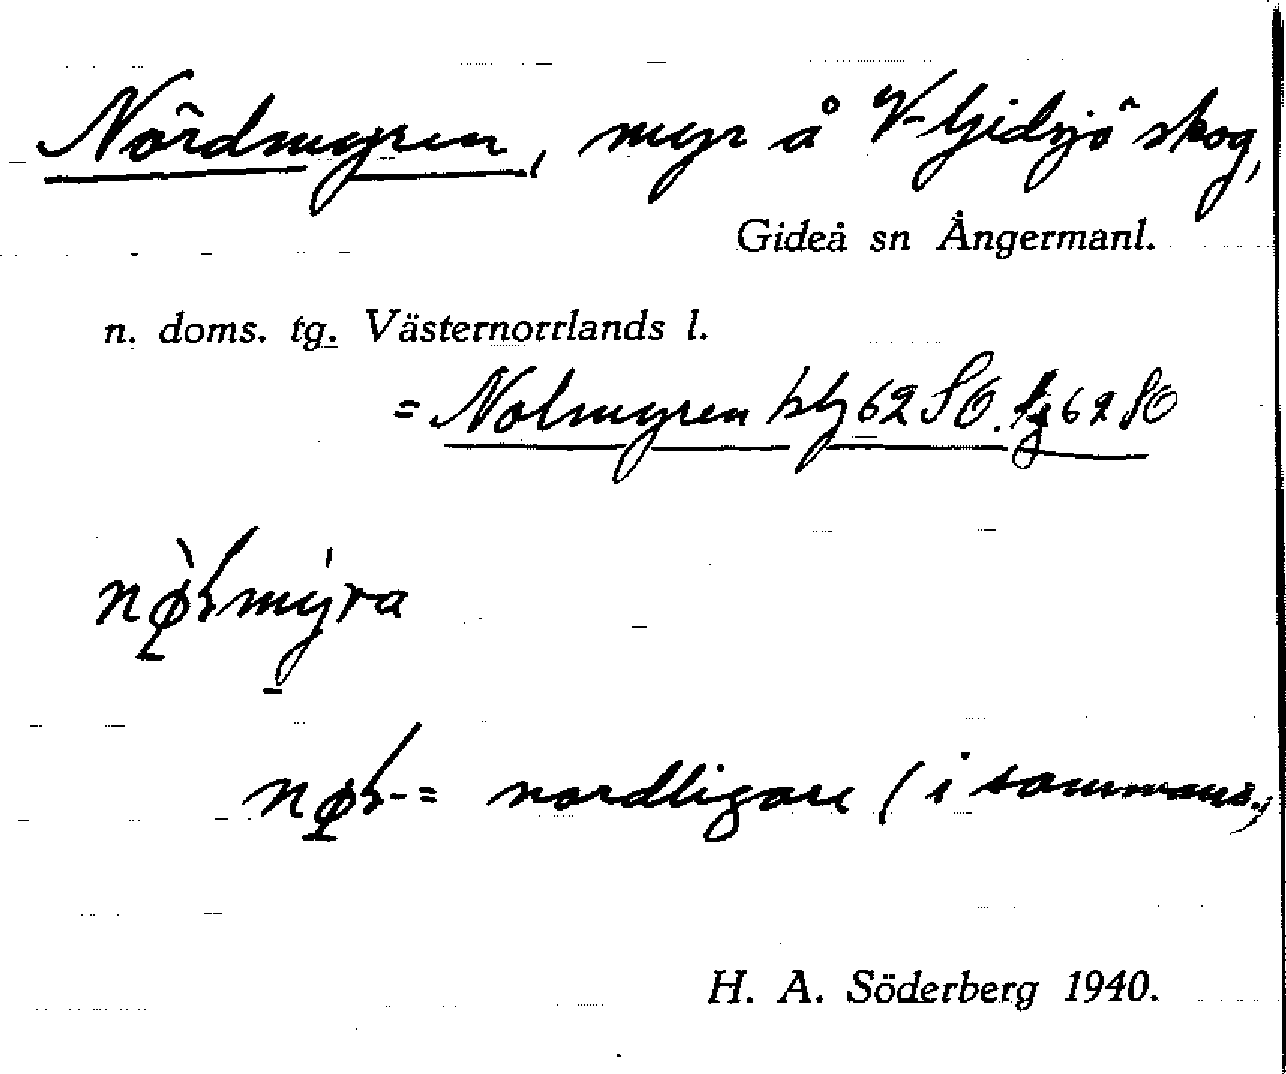 Nördmyren, myr å V-Gidsjö skog,
Gideå sn Ångermanl.
n. doms. tg. Västernorrlands l.
= Nolmyren hbl 62 SO. lg 62 SO
nø̀ʟmýra
nøʟ- = nordligare (i sammans.)
H. A. Söderberg 1940.